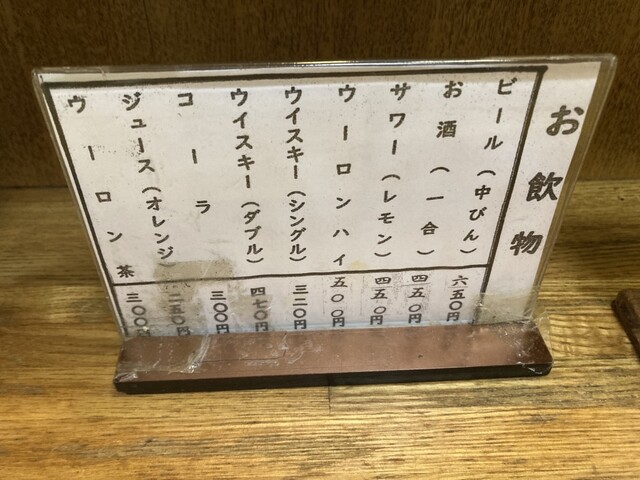 お飲物
ビール（中びん） 六五〇円
お酒（一合） 四五〇円
サワー（レモン） 四五〇円
ウーロンハイ 五〇〇円
ウイスキー（シングル） 三二〇円
ウイスキー（ダブル） 四七〇円
コーラ 三〇〇円
ジュース（オレンジ） 二五〇円
ウーロン茶 三〇〇円